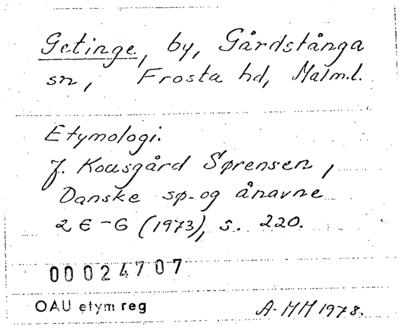 Getinge, by, Gårdstånga
sn, Frosta hd, Malm.l.
Etymologi.
J. Kousgård Sørensen,
Danske sø- og ånavne
2 E-G (1973), s. 220.
00024707
OAU etym reg
A-MM 1978.